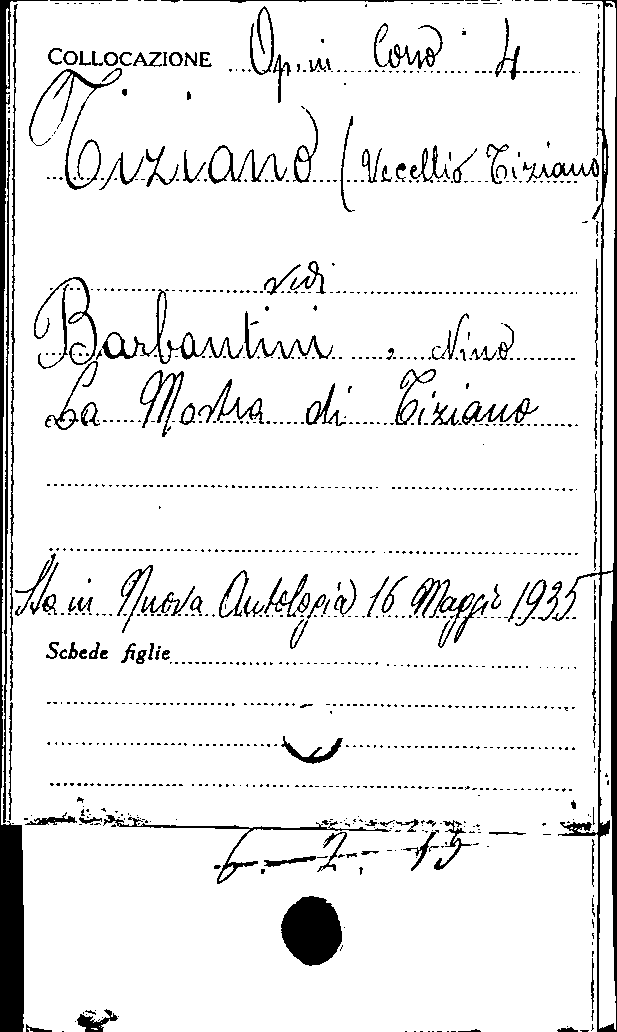 COLLOCAZIONE Op. in Corso 4
Tiziano (Vecellio Tiziano)
vedi
Barbantini, Nino
La Mostra di Tiziano
Sta in Nuova Antologia 16 Maggio 1935
Schede figlie
6. 2. 13